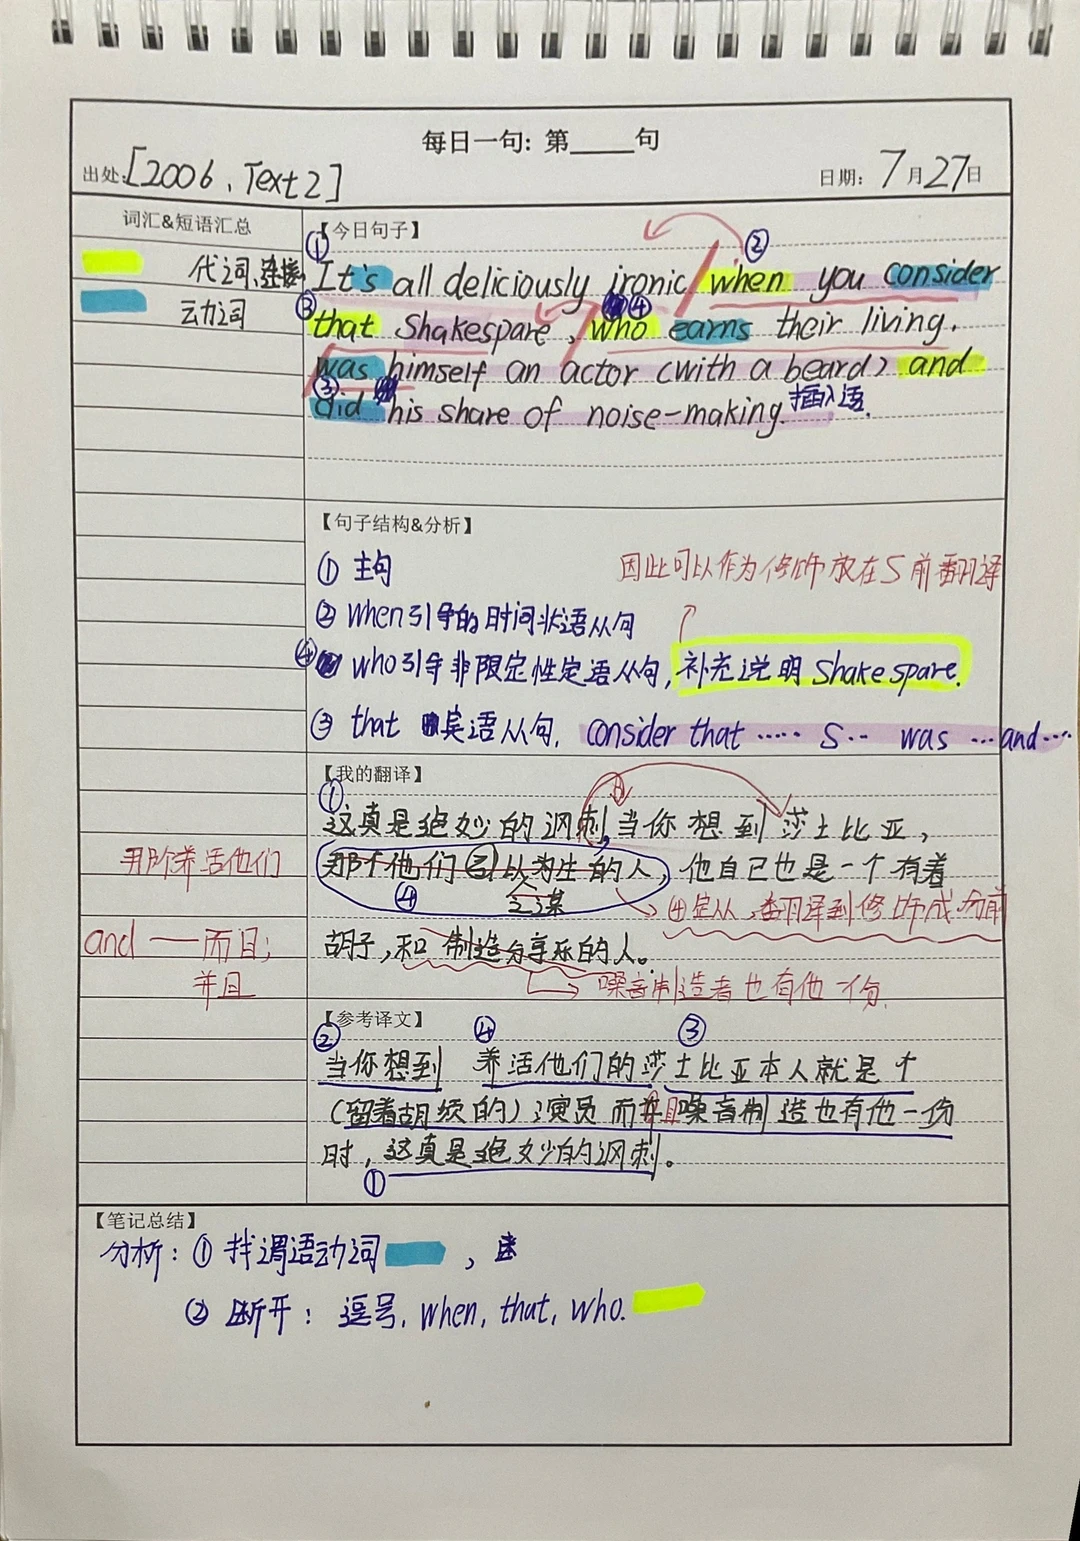 每日一句: 第_____句
出处: [2006、Text2]
日期: 7月27日
词汇&短语汇总
代词、连接
动词
【今日句子】
① ②
It's all deliciously ironic / when you consider
③ ④
that Shakespare, who earns their living.
was himself an actor (with a beard) and
③
did his share of noise-making. 插入语.
【句子结构&分析】
① 主句
因此可以作为修饰放在S前翻译
② when引导的时间状语从句
④ who引导非限定性定语从句, 补充说明 Shakespare.
③ that 宾语从句, consider that ····· S·· was ···and···
【我的翻译】
①
这真是绝妙的讽刺,当你想到莎士比亚,
那个他们引以为生的人, 他自己也是一个有着
④ 之谋
④定从,翻译到修饰成分前
胡子,和制造分享乐的人。
噪音制造者也有他一份.
那个养活他们
and —— 而且;
并且
【参考译文】
② ④ ③
当你想到 养活他们的莎士比亚本人就是个
(留着胡须的)演员而并且噪音制造也有他一份
时,这真是绝妙的讽刺。
①
【笔记总结】
分析: ① 找谓语动词 ,
② 断开: 逗号, when, that, who.